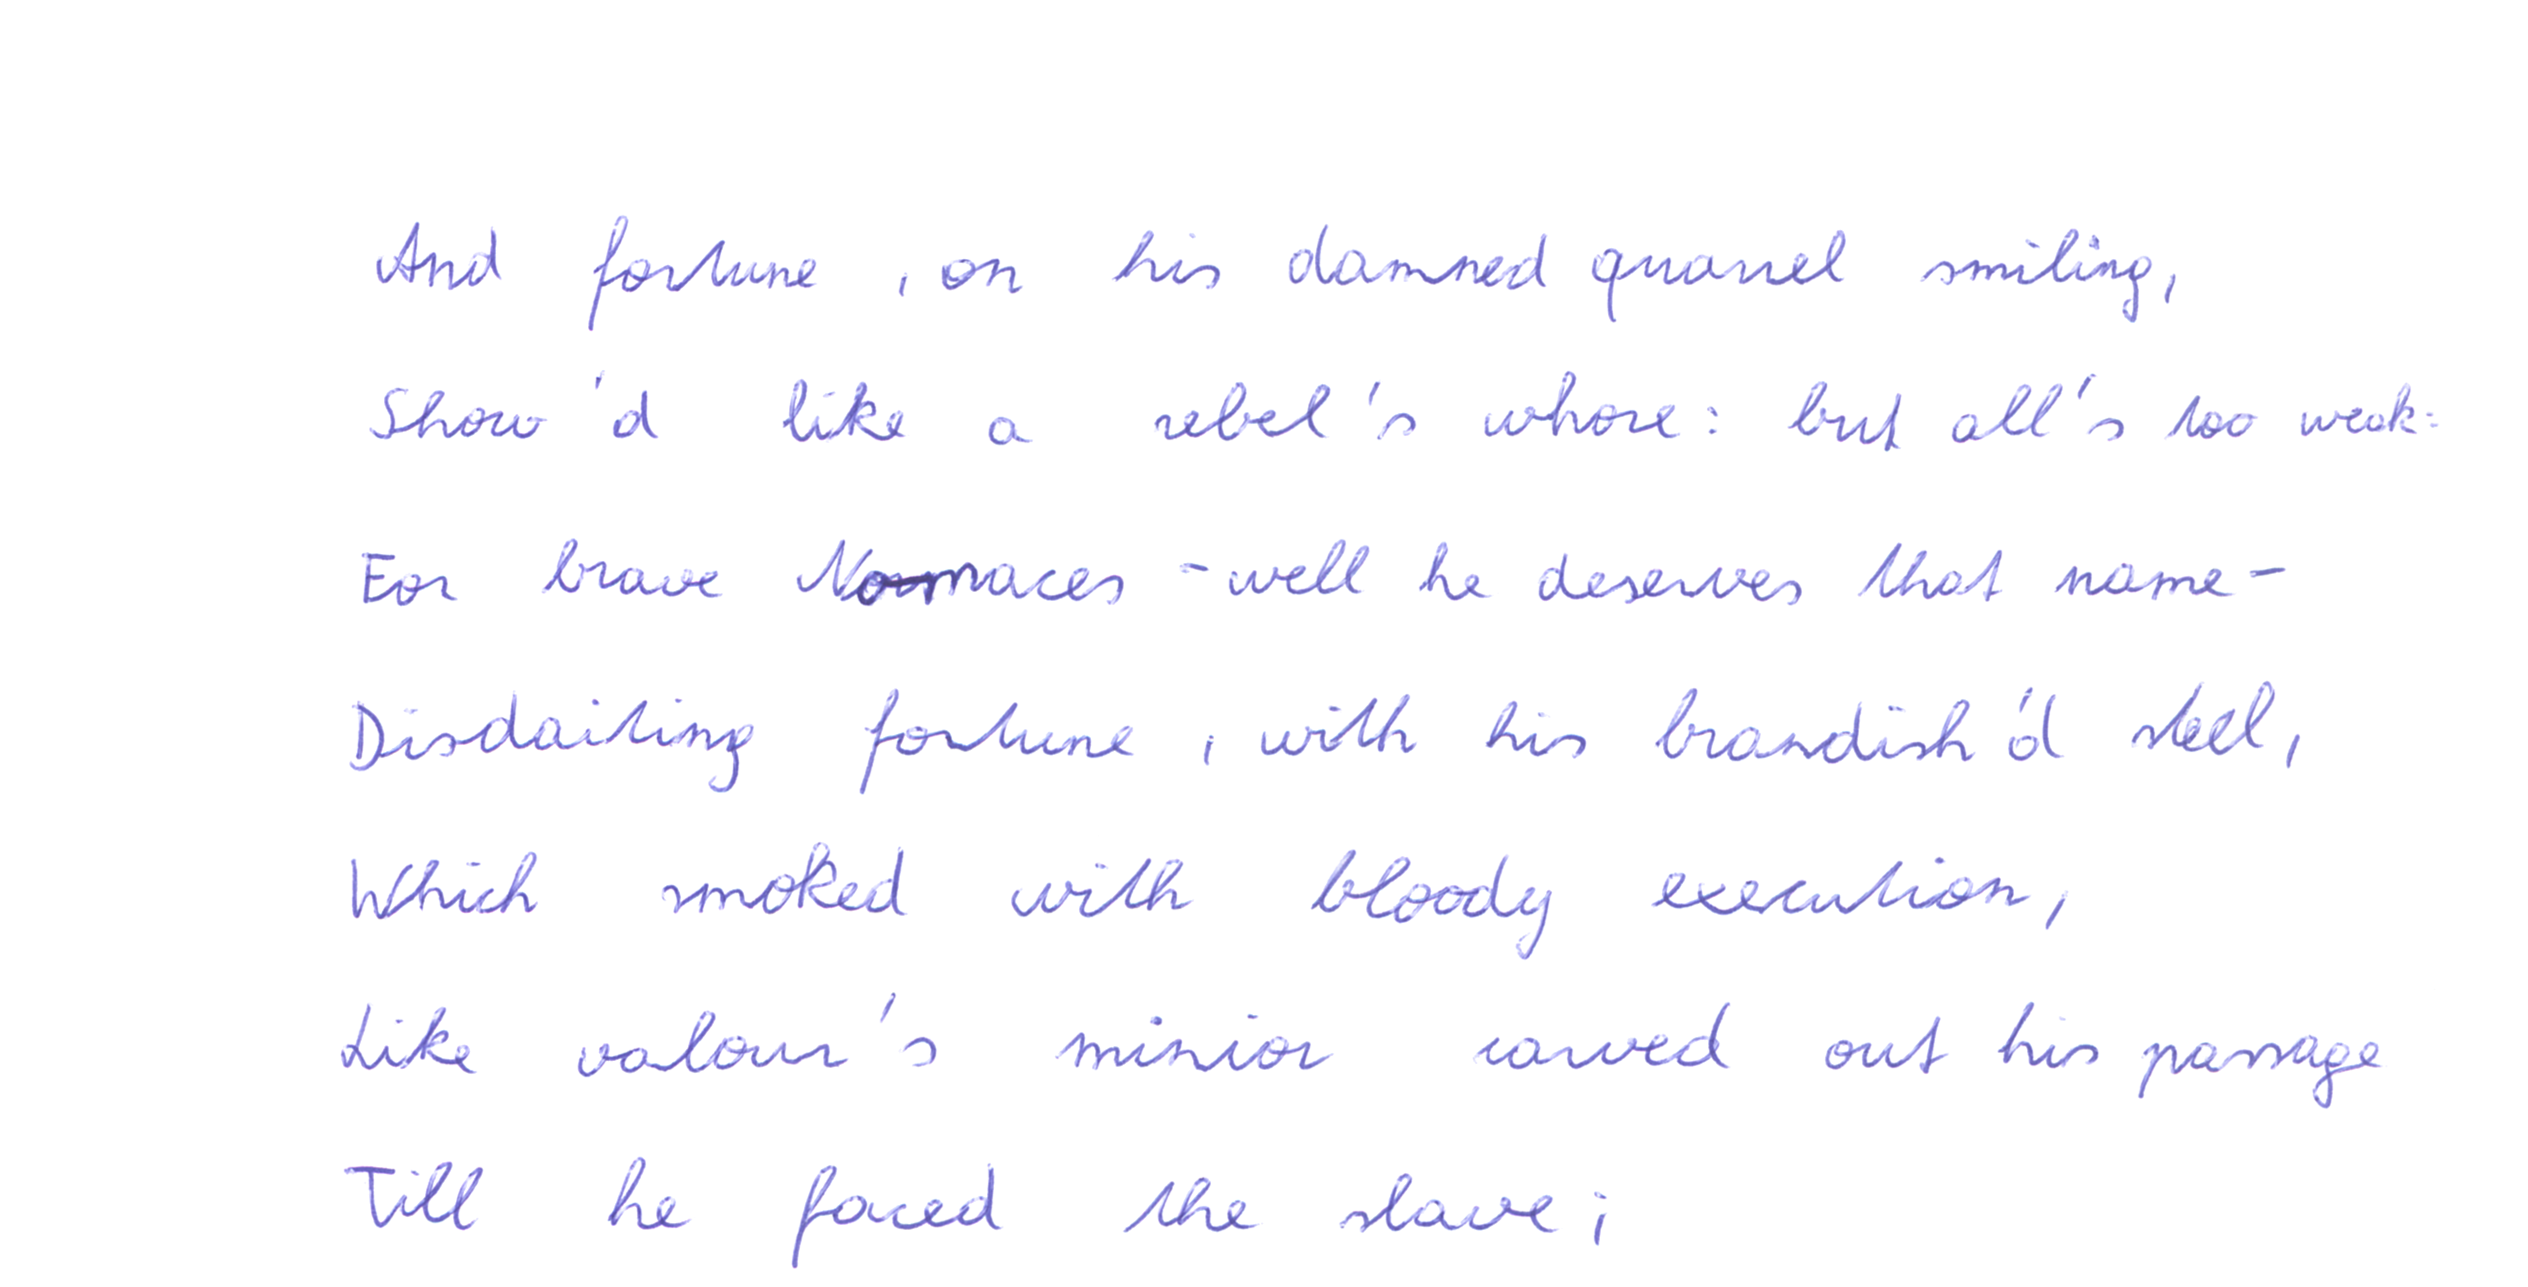 And fortune, on his damned quarrel smiling,
Show'd like a rebel's whore: but all's too weak:
For brave Normaces - well he deserves that name -
Disdaiting fortune, with his brandish'd steel,
Which smoked with bloody execution,
Like valour's minior carved out his passage
Till he faced the slave;